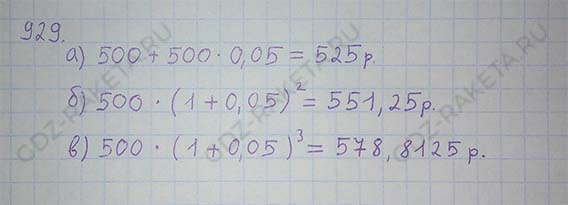 929.
а) 500 + 500 · 0,05 = 525 р.
б) 500 · (1 + 0,05)² = 551,25 р.
в) 500 · (1 + 0,05)³ = 578,8125 р.
GDZ-RAKETA.RU
GDZ-RAKETA.RU
GDZ-RAKETA.RU